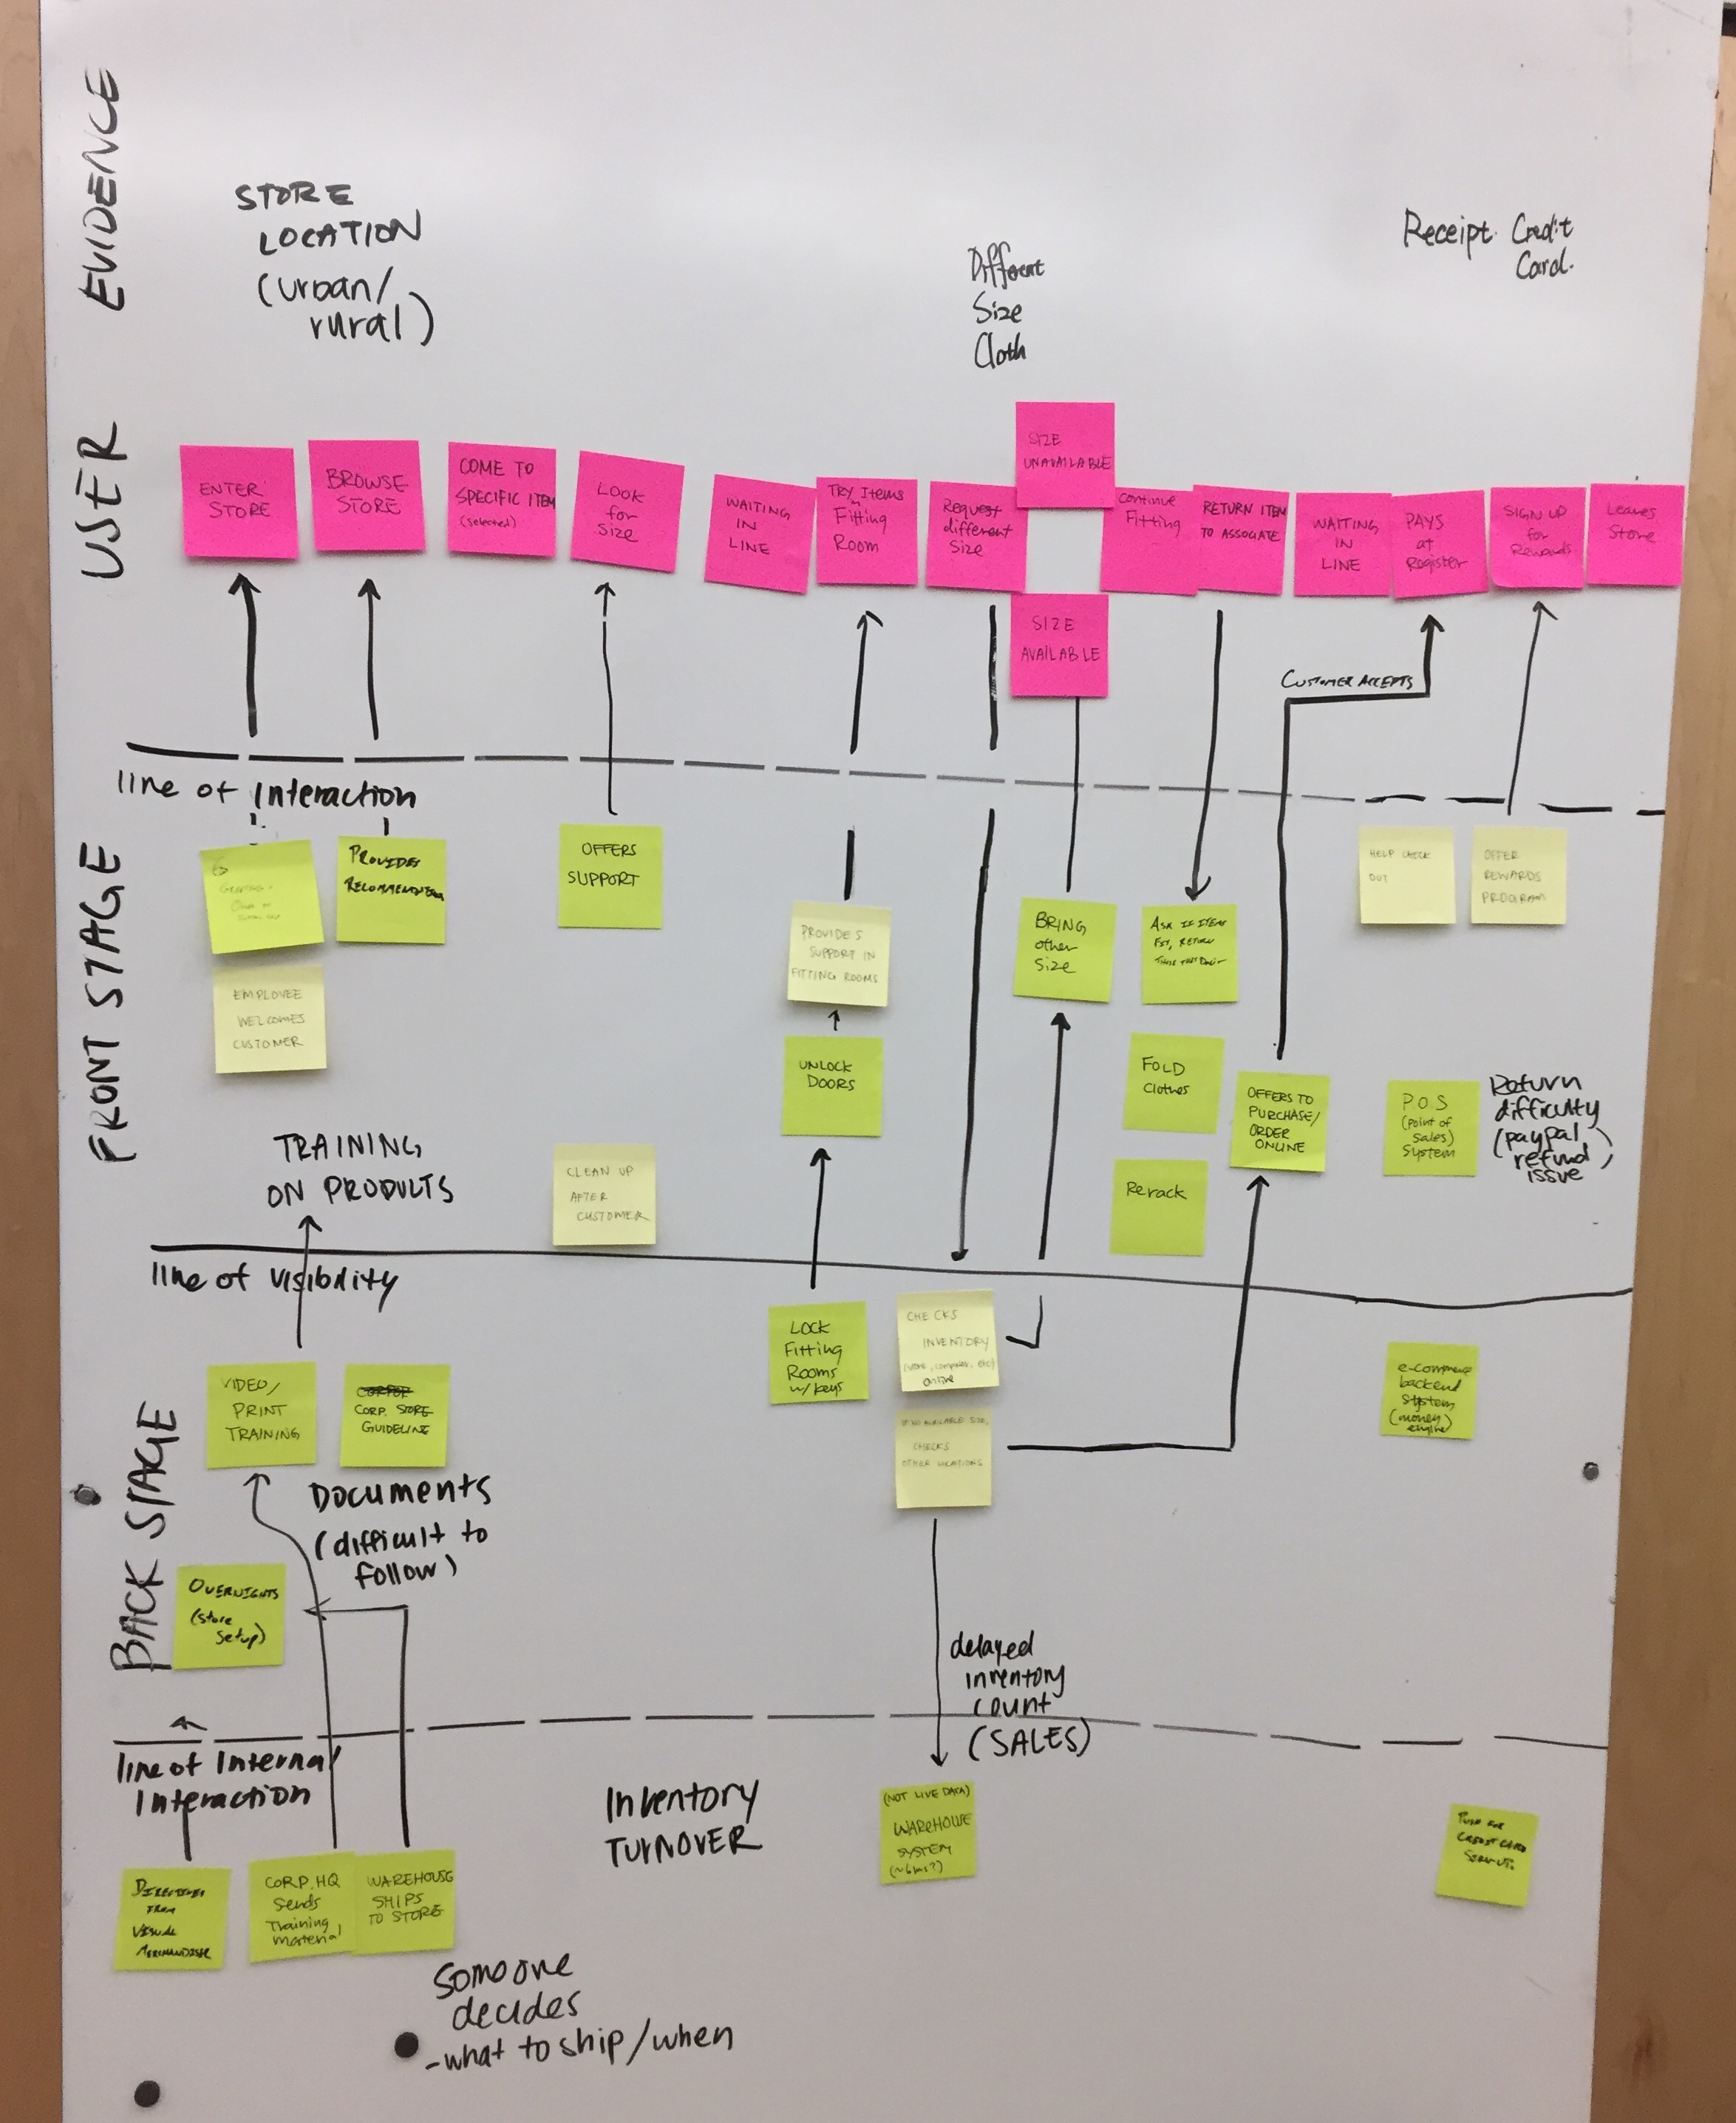 EVIDENCE
STORE
LOCATION
(urban/
rural)
Different
Size
Cloth
Receipt. Credit
Card.
USER
ENTER
STORE
BROWSE
STORE
COME TO
SPECIFIC ITEM
(selected)
LOOK
for
Size
WAITING
IN
LINE
TRY Items
in
Fitting
Room
Request
different
Size
SIZE
UNAVAILABLE
SIZE
AVAILABLE
Continue
Fitting
RETURN ITEM
TO ASSOCIATE
WAITING
IN
LINE
PAYS
at
Register
SIGN UP
for
Rewards
Leaves
Store
CUSTOMER ACCEPTS
line of Interaction
FRONT STAGE
PROVIDES
EMPLOYEE
WELCOMES
CUSTOMER
OFFERS
SUPPORT
PROVIDES
SUPPORT IN
FITTING ROOMS
UNLOCK
DOORS
BRING
other
Size
ASK IF ITEMS
FIT, RETURN
THOSE THAT DON'T
FOLD
Clothes
Rerack
OFFERS TO
PURCHASE/
ORDER
ONLINE
HELP CHECK
OUT
OFFER
REWARDS
PROGRAM
P.O.S
(point of
Sales)
System
Return
difficulty
(paypal
refund
issue)
TRAINING
ON PRODUCTS
CLEAN UP
AFTER
CUSTOMER
line of visibility
BACK STAGE
VIDEO/
PRINT
TRAINING
CORP. STORE
GUIDELINE
DOCUMENTS
(difficult to
follow)
OVERNIGHTS
(store
setup)
LOCK
Fitting
Rooms
w/keys
CHECKS
INVENTORY
(store, computer, etc)
online
IF NO AVAILABLE SIZE,
CHECKS
OTHER LOCATIONS
e-commerce
backend
system
(money
engine)
delayed
inventory
count
(SALES)
line of Internal
Interaction
DIRECTIVES
FROM
VISUAL
MERCHANDISER
CORP. HQ
Sends
Training
material
WAREHOUSE
SHIPS
TO STORE
Inventory
TURNOVER
(NOT LIVE DATA)
WAREHOUSE
SYSTEM
PUSH FOR
CREDIT CARD
Someone
decides
-what to ship/when